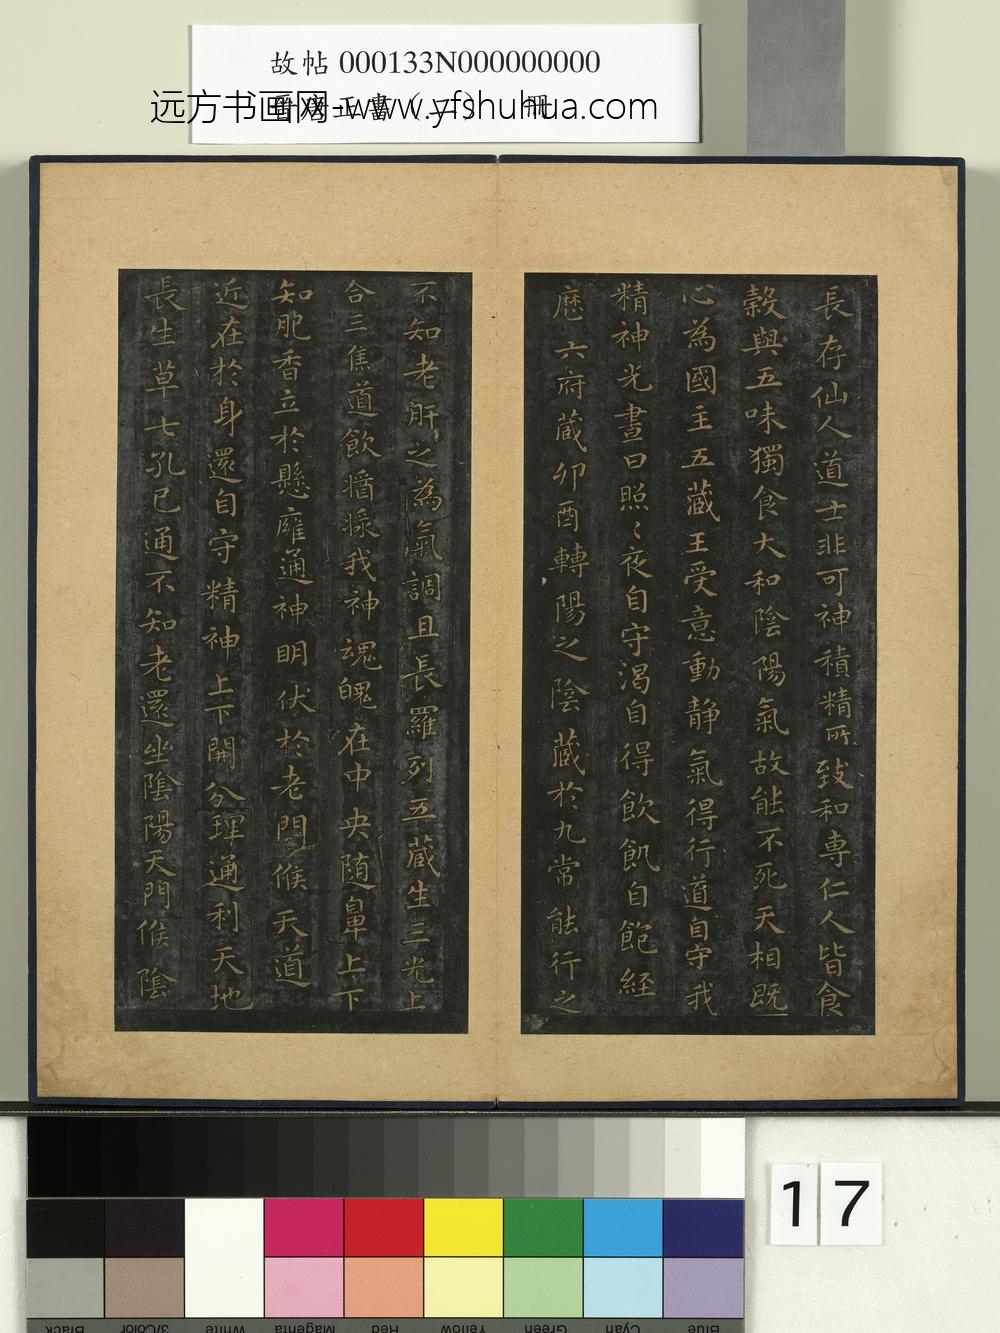 故帖 000133N000000000
远方书画网-www.yfshuhua.com
長存仙人道士非可神積精所致和專仁人皆食
穀與五味獨食大和陰陽氣故能不死天相既
心為國主五藏王受意動靜氣得行道自守我
精神光晝日照〻夜自守渴自得飲飢自飽經
歷六府藏卯酉轉陽之陰藏於九常能行之
不知老肝之為氣調且長羅列五藏生三光上
合三焦道飲漿我神魂魄在中央随鼻上下
知肥香立於懸廱通神明伏於老門候天道
近在於身還自守精神上下開分理通利天地
長生草七孔已通不知老還坐陰陽天門候陰
17
Black
3/Color
White
Magenta
Red
Yellow
Green
Cyan
Blue